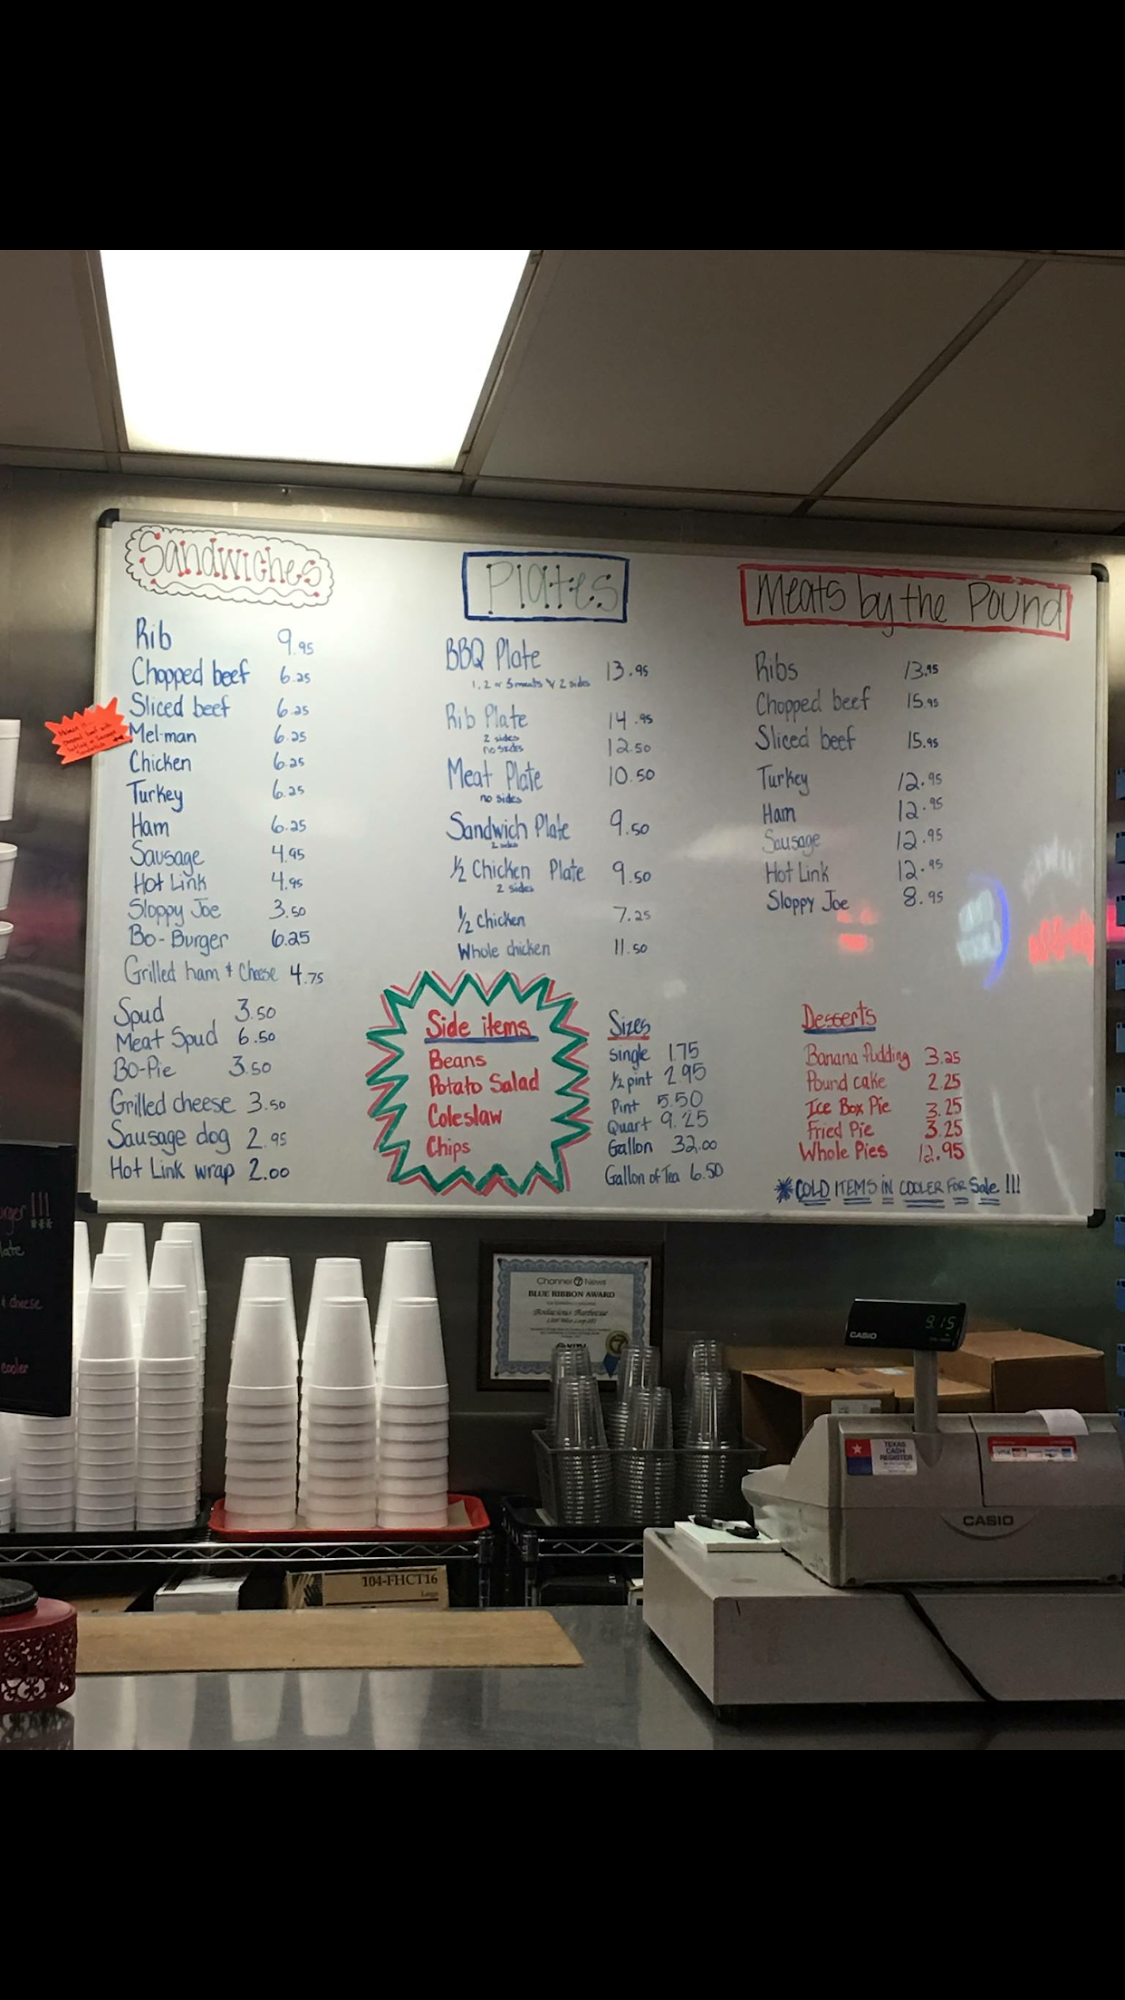 Sandwiches
Rib 9.95
Chopped beef 6.25
Sliced beef 6.25
Mel-man 6.25
Chicken 6.25
Turkey 6.25
Ham 6.25
Sausage 4.95
Hot Link 4.95
Sloppy Joe 3.50
Bo-Burger 6.25
Grilled ham & Cheese 4.75
Spud 3.50
Meat Spud 6.50
Bo-Pie 3.50
Grilled cheese 3.50
Sausage dog 2.95
Hot Link wrap 2.00
Plates
BBQ Plate 13.95
1, 2 or 3 meats & 2 sides
Rib Plate 14.95
2 sides
no sides 12.50
Meat Plate 10.50
no sides
Sandwich Plate 9.50
2 sides
1/2 Chicken Plate 9.50
2 sides
1/2 Chicken 7.25
Whole chicken 11.50
Side items
Beans
Potato Salad
Coleslaw
Chips
Sizes
Single 1.75
1/2 pint 2.95
Pint 5.50
Quart 9.25
Gallon 32.00
Gallon of Tea 6.50
Meats by the Pound
Ribs 13.95
Chopped beef 15.95
Sliced beef 15.95
Turkey 12.95
Ham 12.95
Sausage 12.95
Hot Link 12.95
Sloppy Joe 8.95
Desserts
Banana Pudding 3.25
Pound cake 2.25
Ice Box Pie 3.25
Fried Pie 3.25
Whole Pies 12.95
*COLD ITEMS IN COOLER FOR Sale !!!
urger !!!
late
& cheese
cooler
Channel 7 News
BLUE RIBBON AWARD
Bodacious Barbecue
104-FHCT16
Large
CASIO
9.15
TEXAS
CASH
REGISTER
CASIO